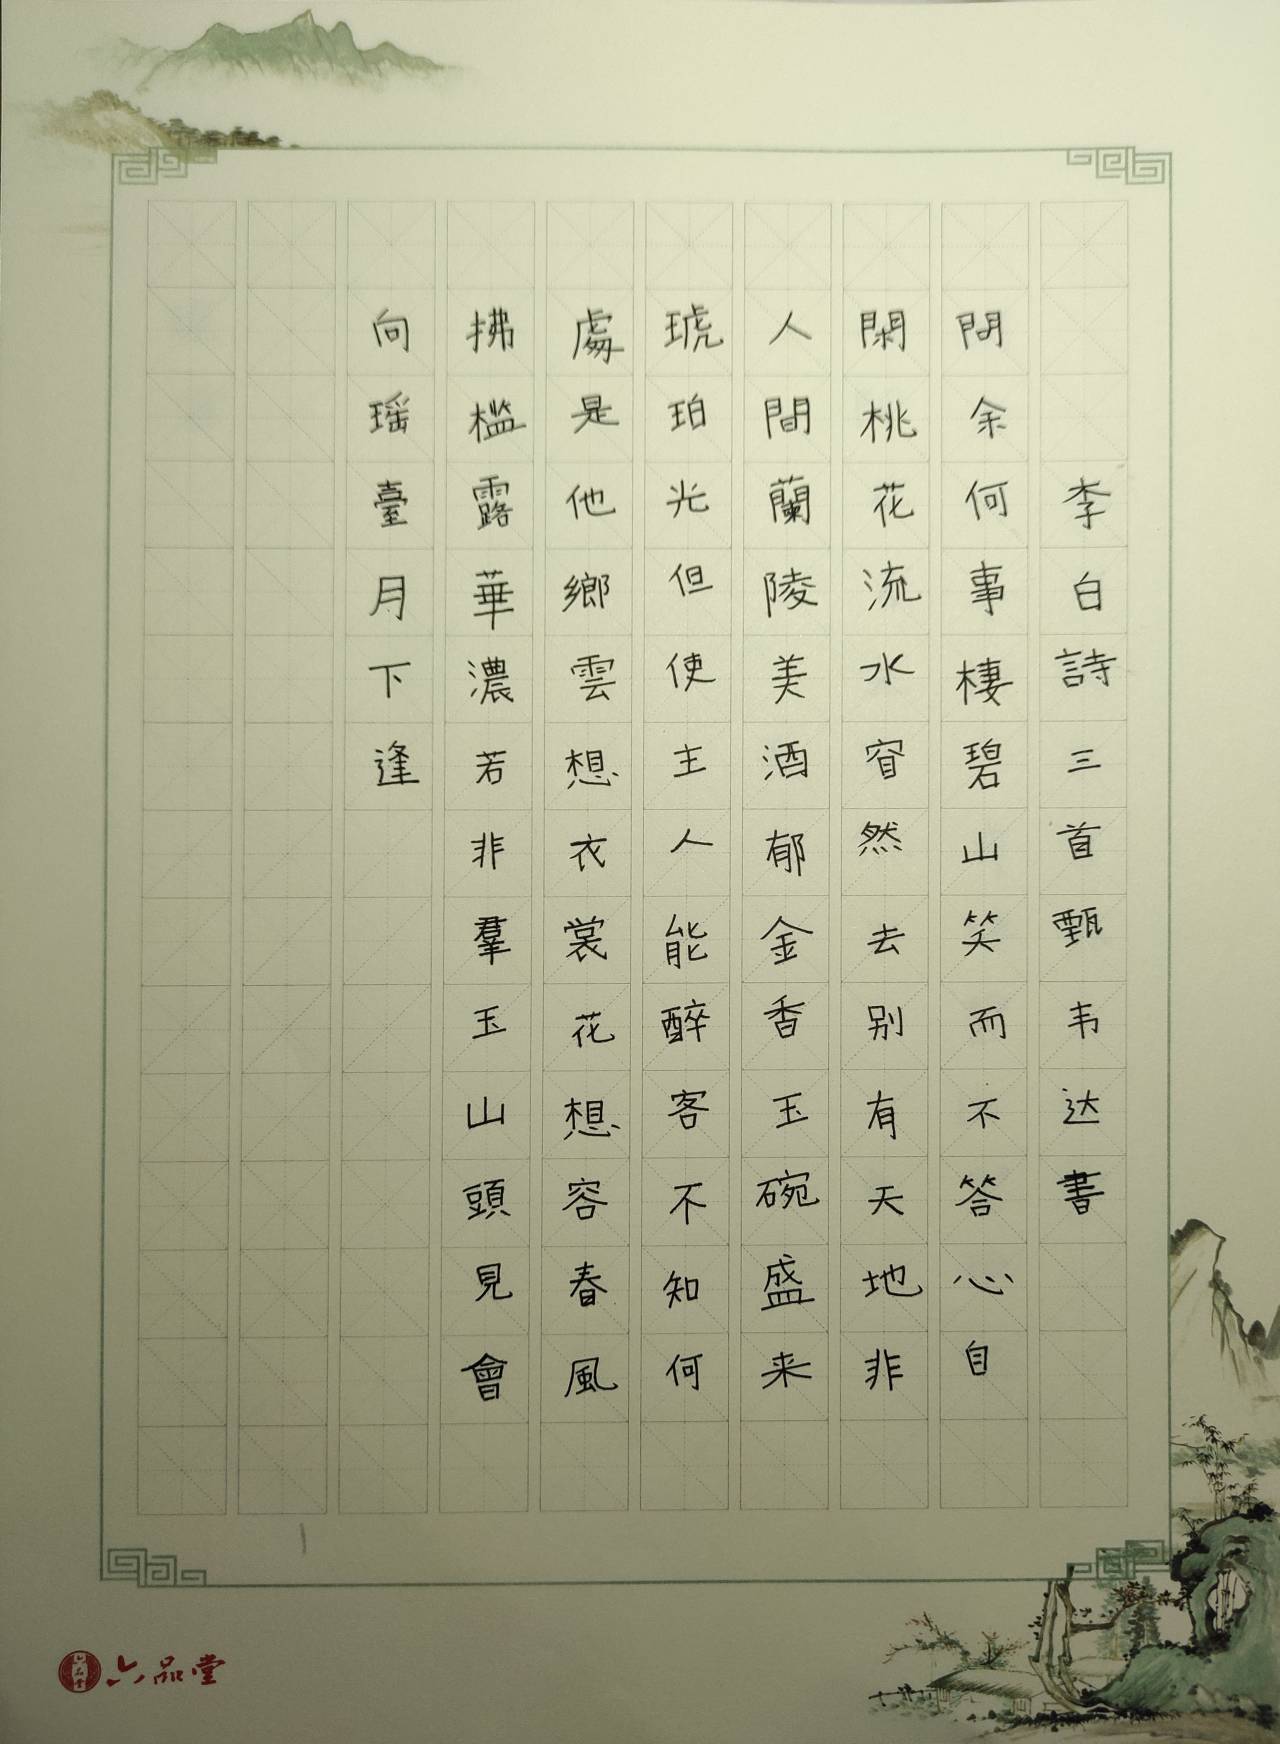 李白詩三首甄韦达書
問余何事棲碧山笑而不答心自
閑桃花流水窅然去别有天地非
人間蘭陵美酒郁金香玉碗盛来
琥珀光但使主人能醉客不知何
處是他鄉雲想衣裳花想容春風
拂檻露華濃若非羣玉山頭見會
向瑶臺月下逢
六品堂